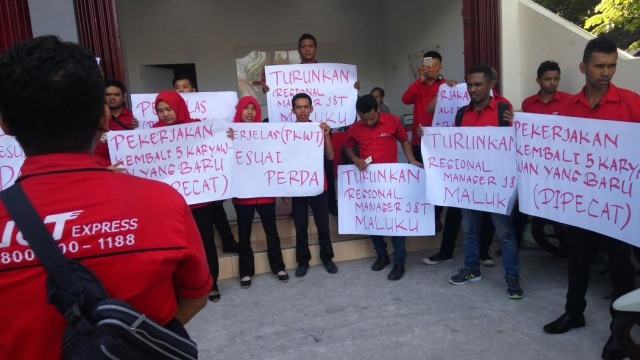 TURUNKAN
REGIONAL
MANAGER J&T
MALUKU
PEKERJAKAN
KEMBALI 5 KARYAW
AN YANG BARU
(DIPECAT)
ERJELAS (PKWT)
ESUAI
PERDA
TURUNKAN
REGIONAL
MANAGER J&T
MALUKU
TURUNKAN
REGIONAL
MANAGER J&T
MALUKU
PEKERJAKAN
KEMBALI 5 KARYA
WAN YANG BARU
(DIPECAT)
J&T EXPRESS
1188